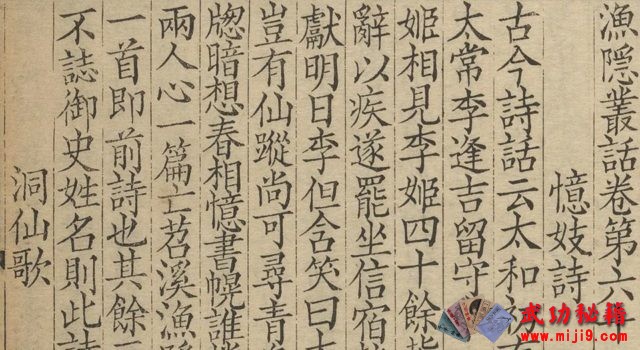 漁隱叢話卷第六
憶妓詩
古今詩話云太和初
太常李逢吉留守
姬相見李姬四十餘
辭以疾遂罷坐信宿
獻明日李但含笑曰
豈有仙蹤尚可尋青
牕暗想春相憶書幌誰
兩人心一篇亡苕溪漁
一首即前詩也其餘
不誌御史姓名則此
洞仙歌
武功秘籍
www.miji9.com